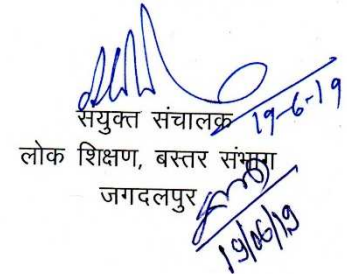 सयुक्त संचालक
19-6-19
लोक शिक्षण, बस्तर संभाग
जगदलपुर
19/06/19